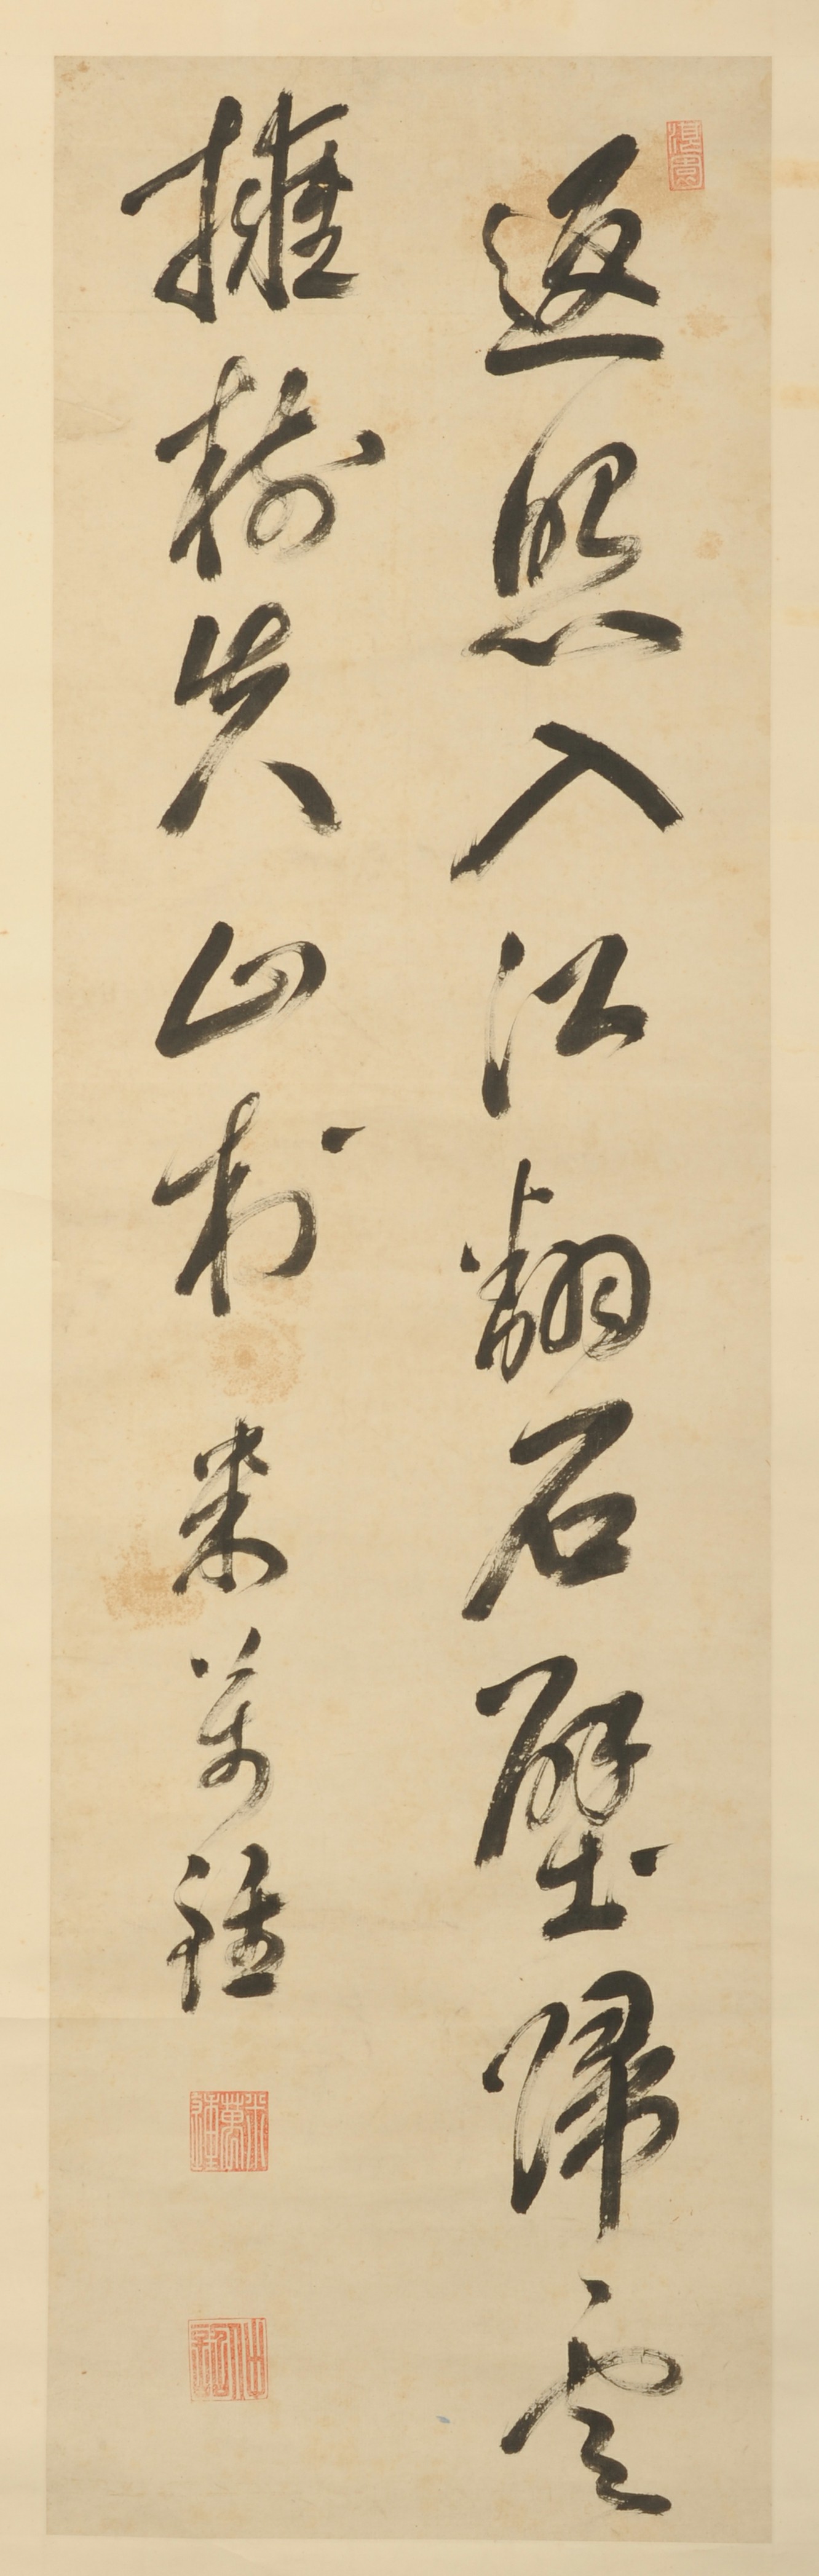 返照入江翻石壁歸雲
擁樹失山村 米萬鍾
米萬鍾